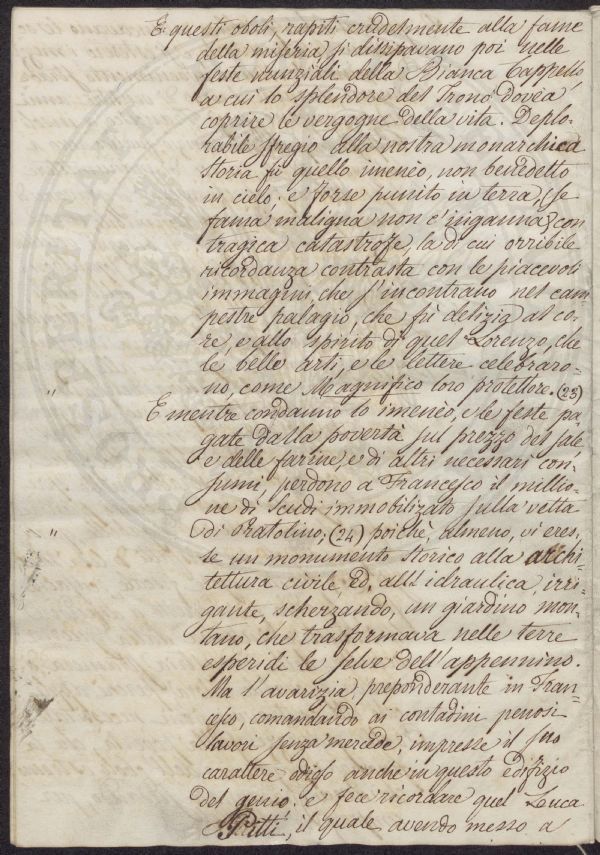 E questi oboli, rapiti crudelmente alla fame
della miseria si dissipavano poi nelle
feste nunziali della Bianca Cappello
a cui lo splendore del Trono dovea
coprire le vergogne della vita. Deplo-
rabile sfregio alla nostra monarchica
storia fù quello imenèo, non benedetto
in cielo; e forse punito in terra, (se
fama maligna non c'inganna) con
tragica catastrofe, la di cui orribile
ricordanza contrasta con le piacevoli
immagini, che s'incontrano nel cam-
pestre palagio, che fù delizia al co-
re, e allo spirito di quel Lorenzo, che
le belle arti, e le lettere celebraro-
no, come Magnifico loro protettore. (23)
" E mentre condanno lo imenèo, e le feste pa-
gate dalla povertà sul prezzo del sale
e delle farine, e di altri necessari con-
sumi, perdono a Francesco il millio-
ne di Scudi immobilizato sulla vetta
" di Pratolino, (24) poichè, almeno, vi eres-
se un monumento storico alla archi-
tettura civile, ed all'idraulica, irri-
gante, scherzando, un giardino mon-
tano, che trasformava nelle terre
esperidi le selve dell'appennino.
Ma l'avarizia, preponderante in Fran-
cesco, comandando ai contadini penosi
lavori senza mercede, impresse il suo
carattere odioso anche in questo edifizio
del genio: e fece ricordare quel Luca
Pitti, il quale avendo messo a